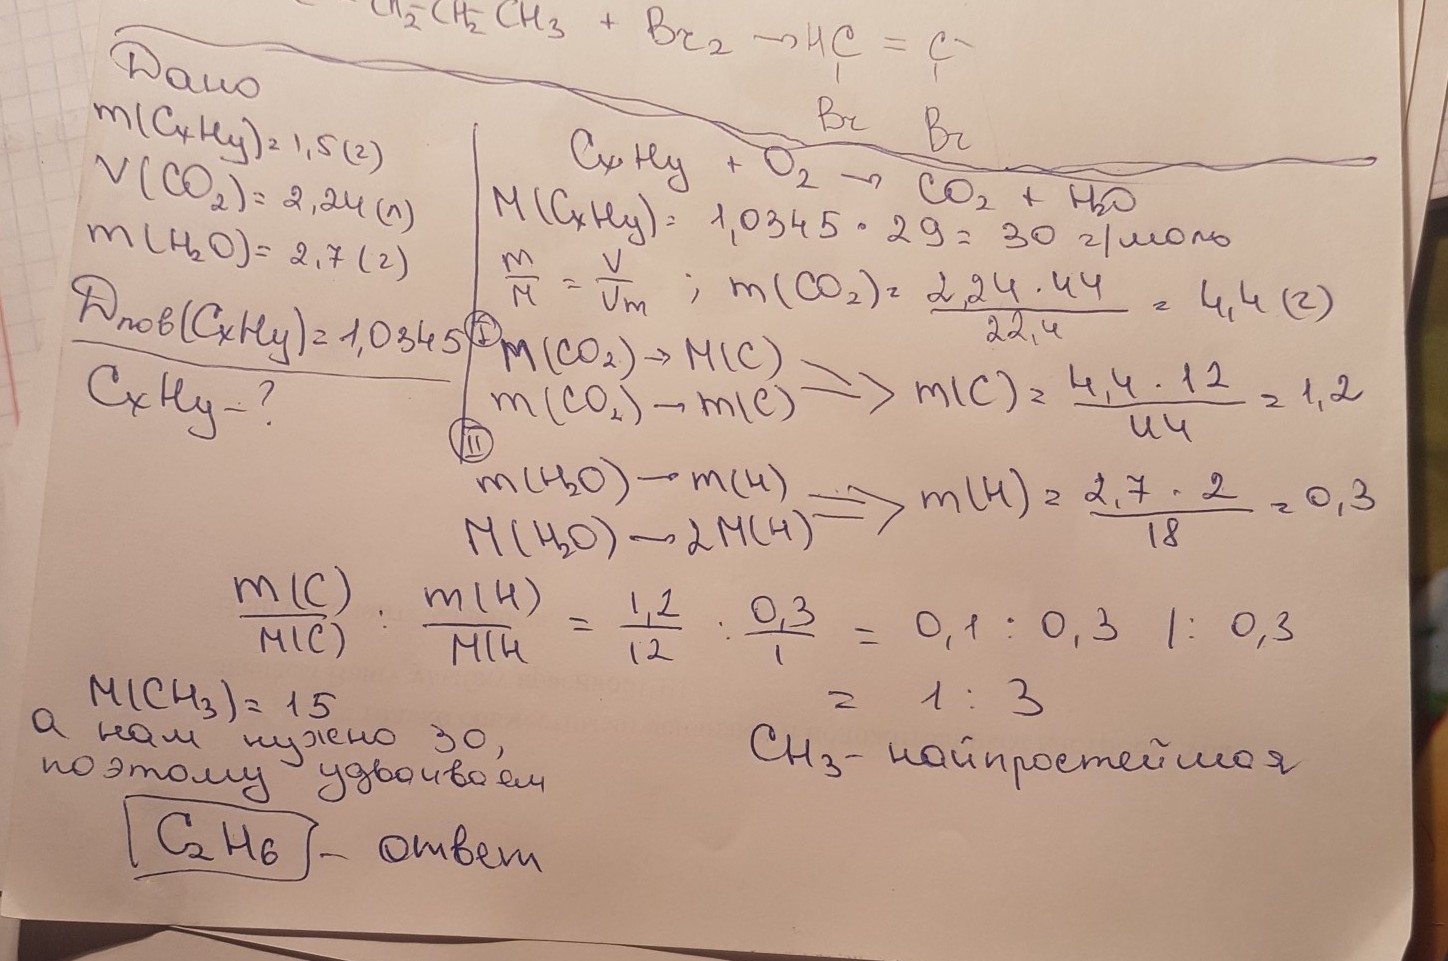 CH₂-CH₂-CH₃ + Br₂ → HC = C-
Br Br
Дано
m(CxHy)=1,5(г)
V(CO₂)=2,24(л)
m(H₂O)=2,7(г)
Dпов(CxHy)=1,0345
CxHy-?
CxHy + O₂ → CO₂ + H₂O
M(CxHy)= 1,0345 · 29= 30 г/моль
m/M = V/Vm ; m(CO₂)= 2,24·44/22,4 = 4,4(г)
I M(CO₂)→M(C)
m(CO₂)→m(C) => m(C)= 4,4·12/44 = 1,2
II
m(H₂O)→m(H)
M(H₂O)→2M(H) => m(H)= 2,7·2/18 = 0,3
m(C)/M(C) : m(H)/M(H = 1,2/12 : 0,3/1 = 0,1 : 0,3 |: 0,3
= 1 : 3
CH₃- найпростейшая
M(CH₃)= 15
а нам нужно 30,
поэтому удваиваем
C₂H₆ - ответ